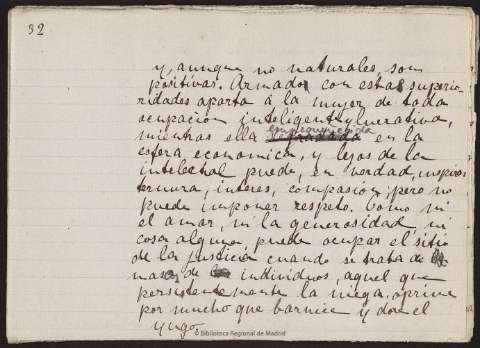 32
y, aunque no naturales, son
positivas. Armado con estas superio
ridades aparta á la mujer de toda
ocupación inteligente y lucrativa,
mientras ella empequeñecida en la
esfera economica, y lejos de la
intelectual puede, en verdad, inspirar
ternura, interes, compasion; pero no
puede imponer respeto. Como ni
el amor, ni la generosidad, ni
cosa alguna puede ocupar el sitio
de la justicia cuando se trata de
masas de individuos, aquel que
persistentemente la niega, oprime
por mucho que barnice y dore el
yugo.
© Biblioteca Regional de Madrid